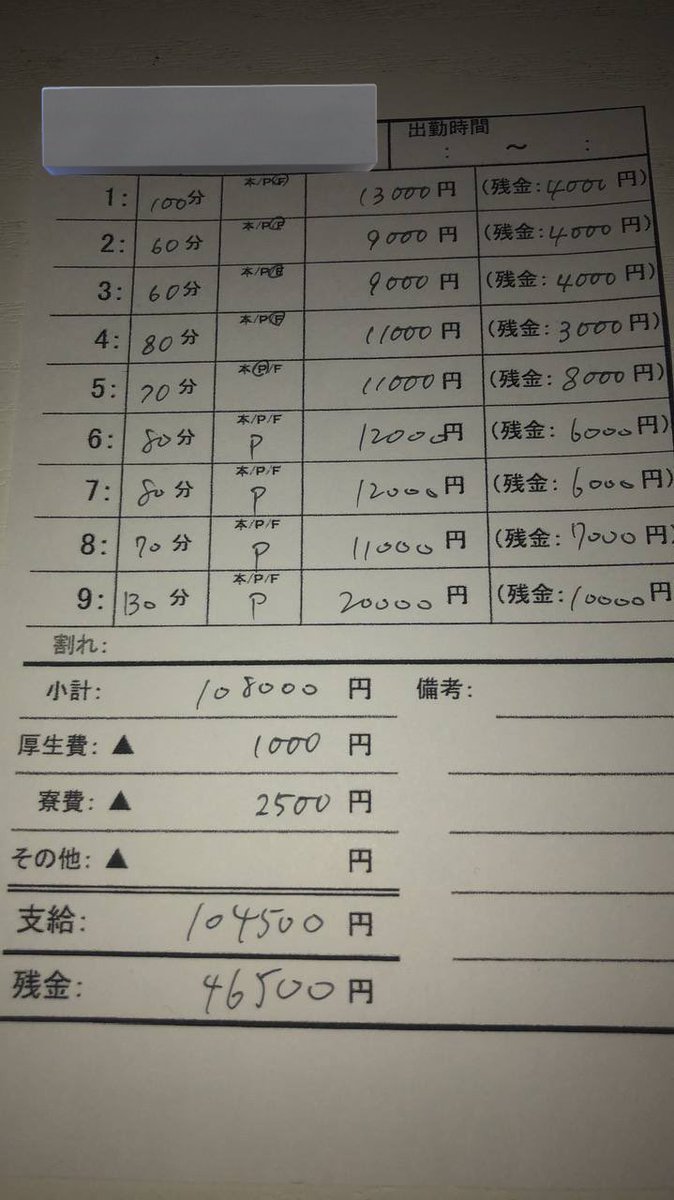 出勤時間
: ～ :
1: 100分 本/P/F 13000円 (残金:4000円)
2: 60分 本/P/F 9000円 (残金:4000円)
3: 60分 本/P/F 9000円 (残金:4000円)
4: 80分 本/P/F 11000円 (残金:3000円)
5: 70分 本/P/F 11000円 (残金:8000円)
6: 80分 本/P/F P 12000円 (残金:6000円)
7: 80分 本/P/F P 12000円 (残金:6000円)
8: 70分 本/P/F P 11000円 (残金:7000円)
9: 130分 本/P/F P 20000円 (残金:10000円)
割れ:
小計: 108000円 備考:
厚生費:▲ 1000円
寮費:▲ 2500円
その他:▲ 円
支給: 104500円
残金: 46500円